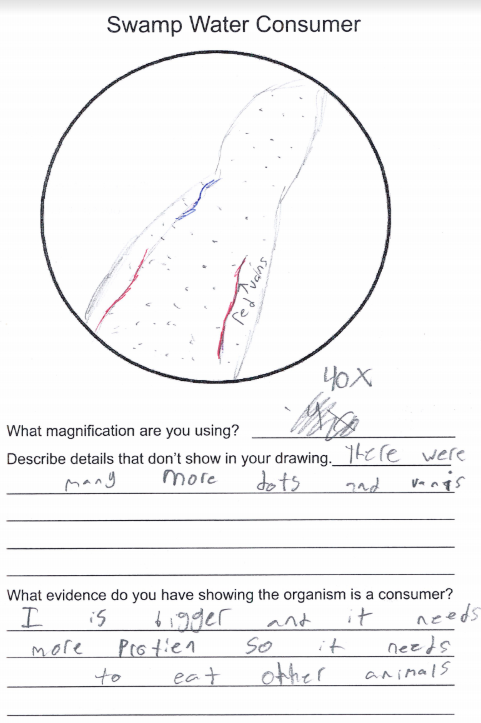 Swamp Water Consumer
red vains
40x
What magnification are you using?
Describe details that don't show in your drawing. There were
many more dots and vanis
What evidence do you have showing the organism is a consumer?
I is bigger and it needs
more Protien so it needs
to eat otther animals